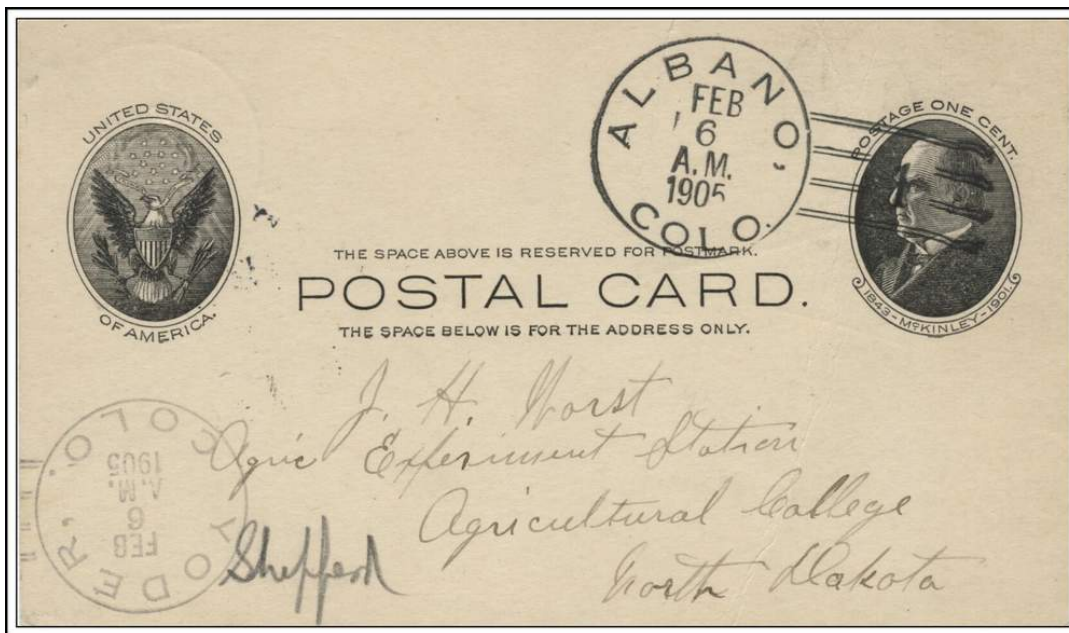 UNITED STATES
OF AMERICA.
ALBANO,
FEB
6
A.M.
1905
COLO.
POSTAGE ONE CENT.
1843-McKINLEY-1901.
THE SPACE ABOVE IS RESERVED FOR POSTMARK.
POSTAL CARD.
THE SPACE BELOW IS FOR THE ADDRESS ONLY.
J. H. Worst
Agric Experiment Station
Agricultural College
North Dakota
Shepperd
YODER,
FEB
6
A.M.
1905
COLO.